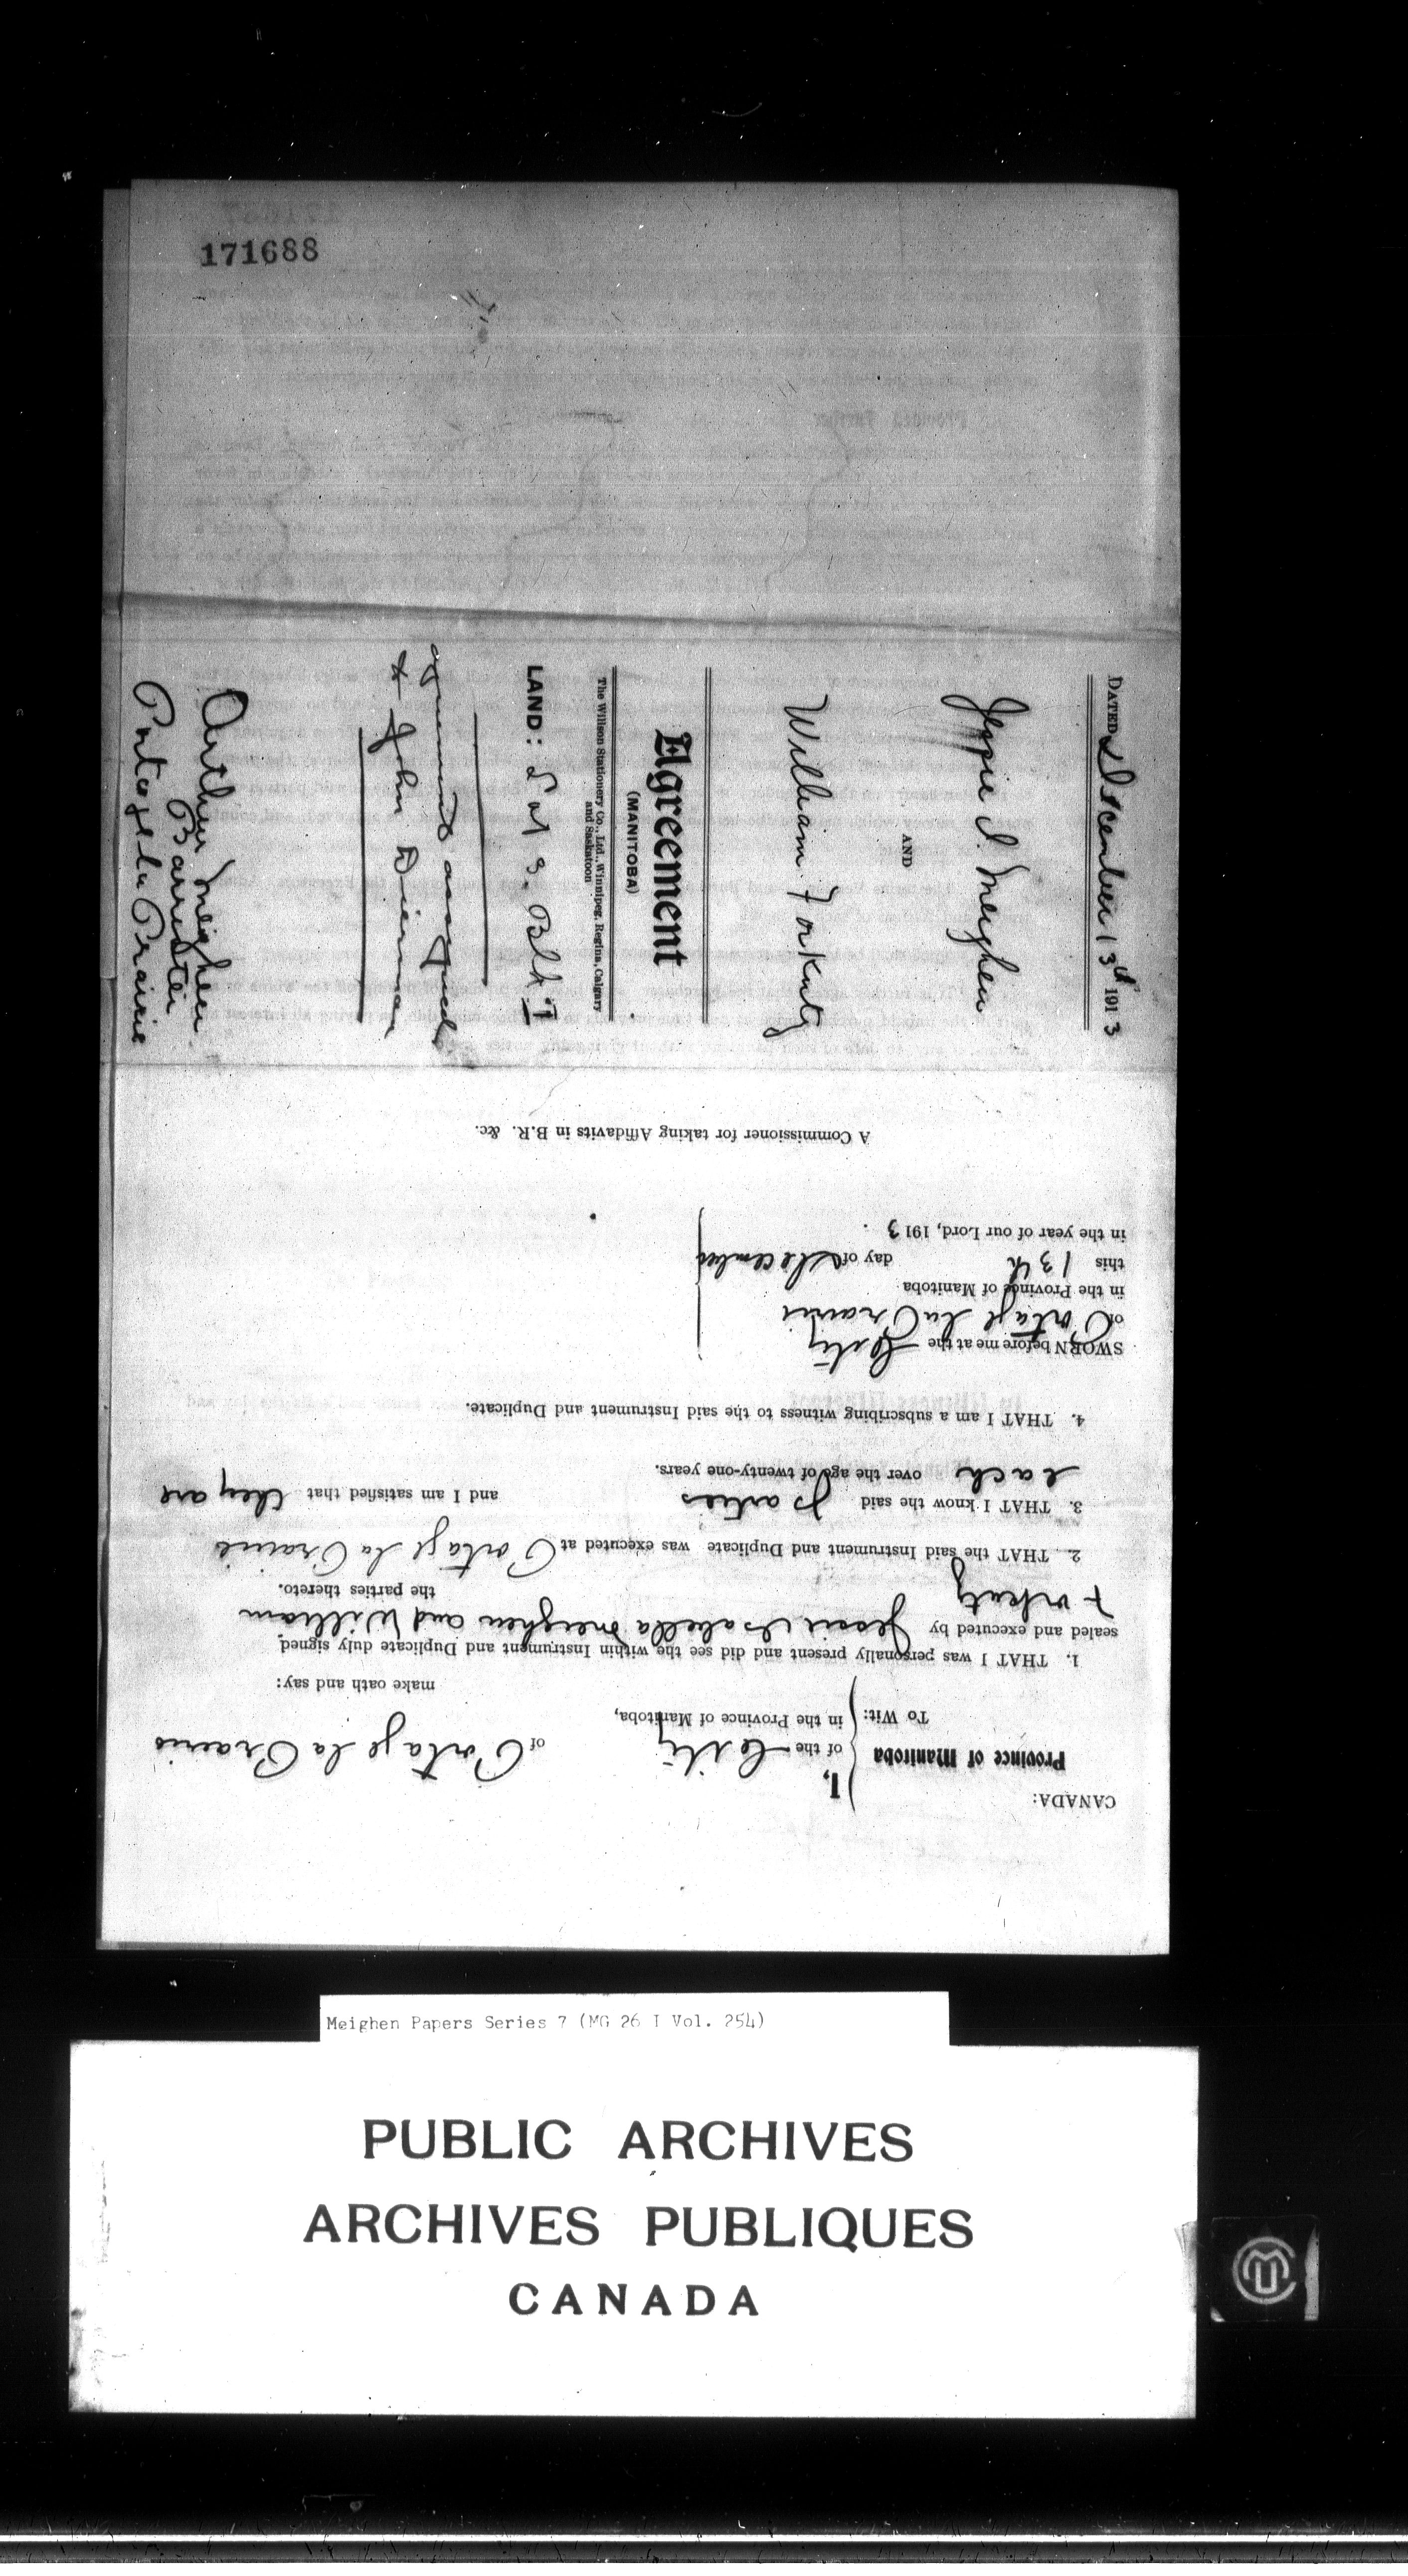 171688
DATED December 13th 1913
Jessie I. Meighen
AND
William Forkuty
Agreement
(MANITOBA)
The Willson Stationery Co., Ltd., Winnipeg, Regina, Calgary
and Saskatoon
LAND: Lot 3, Blk
agreement assigned
to John Diemer
Arthur Meighen
Barrister
Portage la Prairie
CANADA:
Province of Manitoba
To Wit:
I,
of the City of Portage la Prairie
in the Province of Manitoba,
make oath and say:
1. THAT I was personally present and did see the within Instrument and Duplicate duly signed,
sealed and executed by Jessie Isabella Meighen and William
Forkuty the parties thereto.
2. THAT the said Instrument and Duplicate was executed at Portage la Prairie
3. THAT I know the said parties and I am satisfied that they are
each over the age of twenty-one years.
4. THAT I am a subscribing witness to the said Instrument and Duplicate.
SWORN before me at the City
of Portage la Prairie
in the Province of Manitoba
this 13th day of December
in the year of our Lord, 1913.
A Commissioner for taking Affidavits in B.R. &c.
Meighen Papers Series 7 (MG 26 I Vol. 254)
PUBLIC ARCHIVES
ARCHIVES PUBLIQUES
CANADA